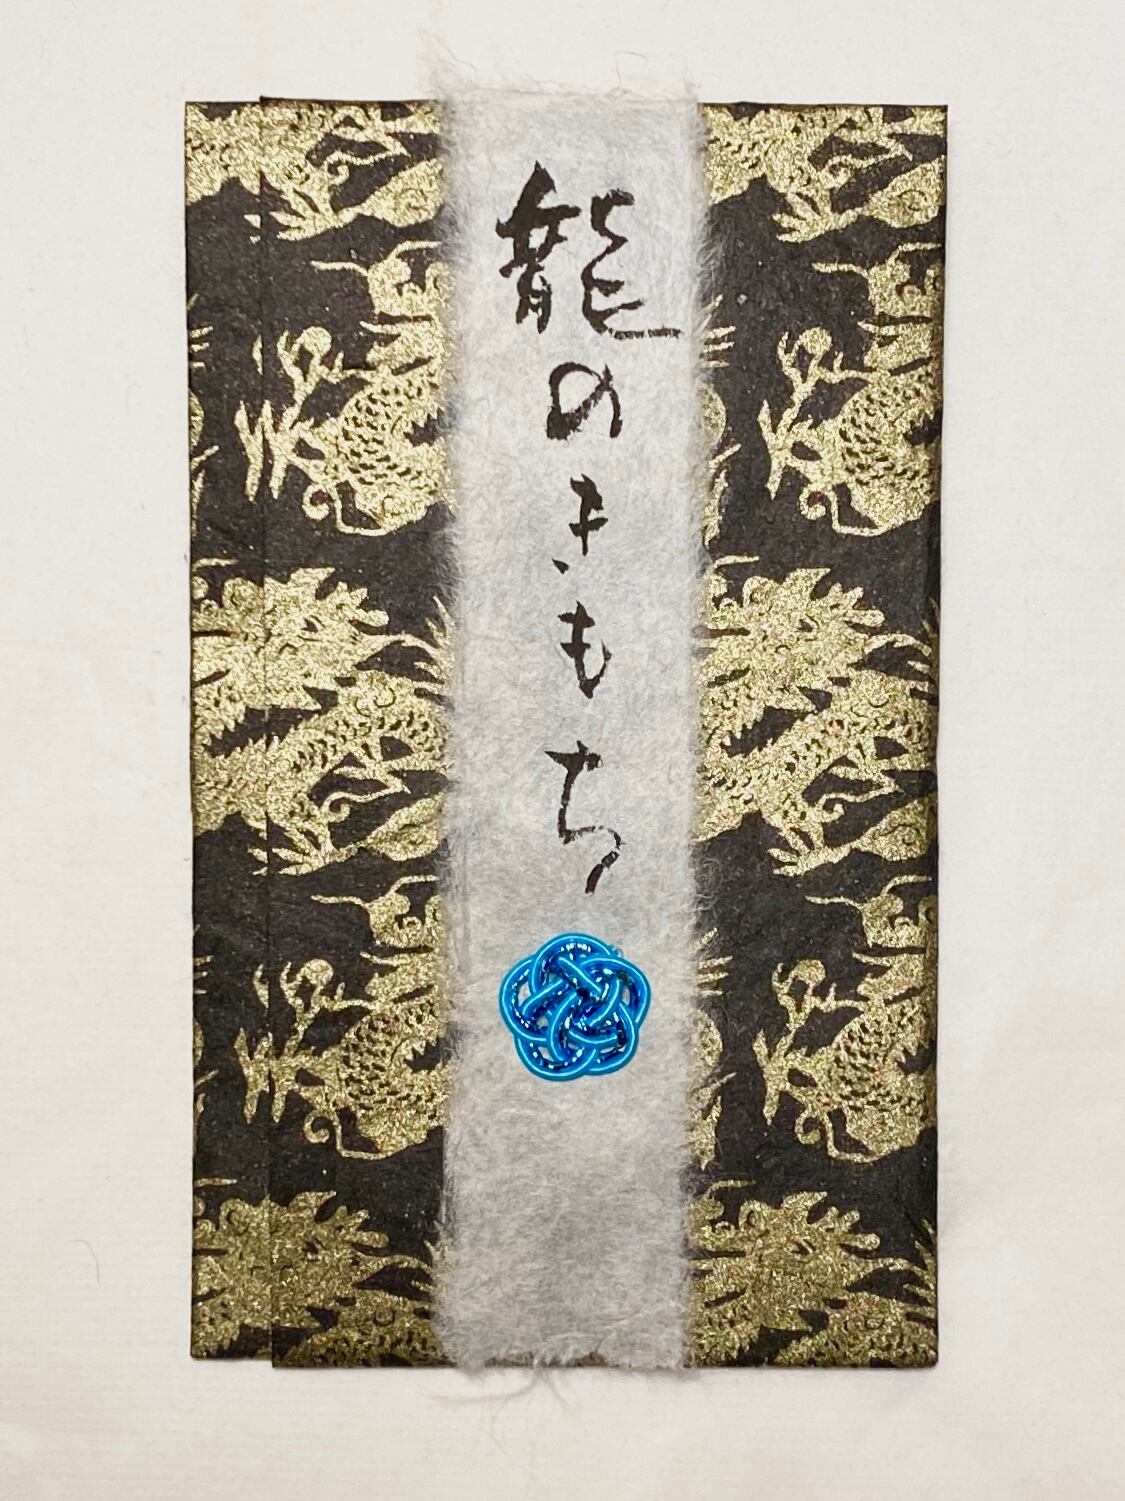 龍のきもち